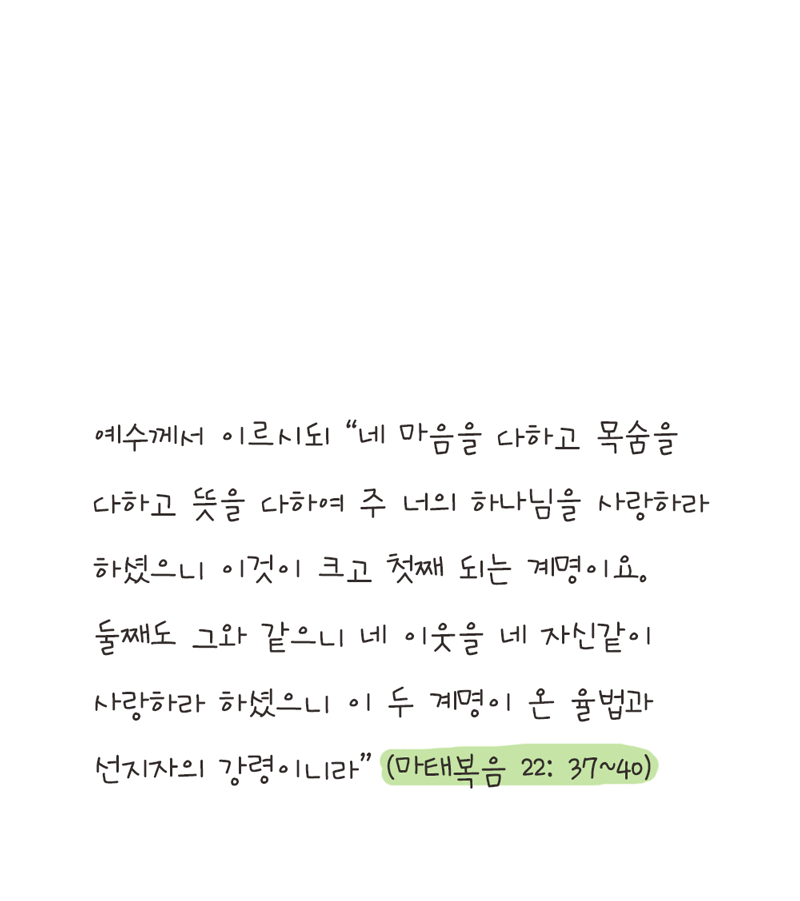 예수께서 이르시되 “네 마음을 다하고 목숨을
다하고 뜻을 다하여 주 너의 하나님을 사랑하라
하셨으니 이것이 크고 첫째 되는 계명이요.
둘째도 그와 같으니 네 이웃을 네 자신같이
사랑하라 하셨으니 이 두 계명이 온 율법과
선지자의 강령이니라” (마태복음 22: 37~40)